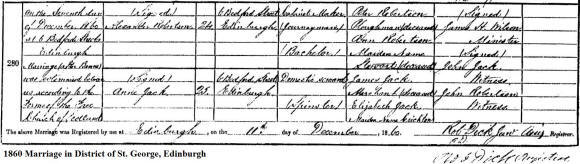 On the Seventh day (Signed) 6 Bedford Street Cabinet Maker Peter Robertson (Signed)
of December 1860 Alexander Robertson 24 Edinburgh (Journeyman) Ploughman (deceased) James H. Wilson
at 6 Bedford Street Ann Robertson Minister
Edinburgh (Bachelor) Maiden Name (Signed)
280 Marriage (after Banns) Stewart (deceased) John Jack
was solemnized between (Signed) 6 Bedford Street Domestic Servant James Jack Witness
us according to the Anne Jack 25 Edinburgh (deceased) John Robertson
Forms of the Free (Spinster) Elizabeth Jack Witness
Church of Scotland Maiden Name
The above Marriage was Registered by me at Edinburgh, on the 11th day of December, 1860. Registrar.
1860 Marriage in District of St. George, Edinburgh
Registrar